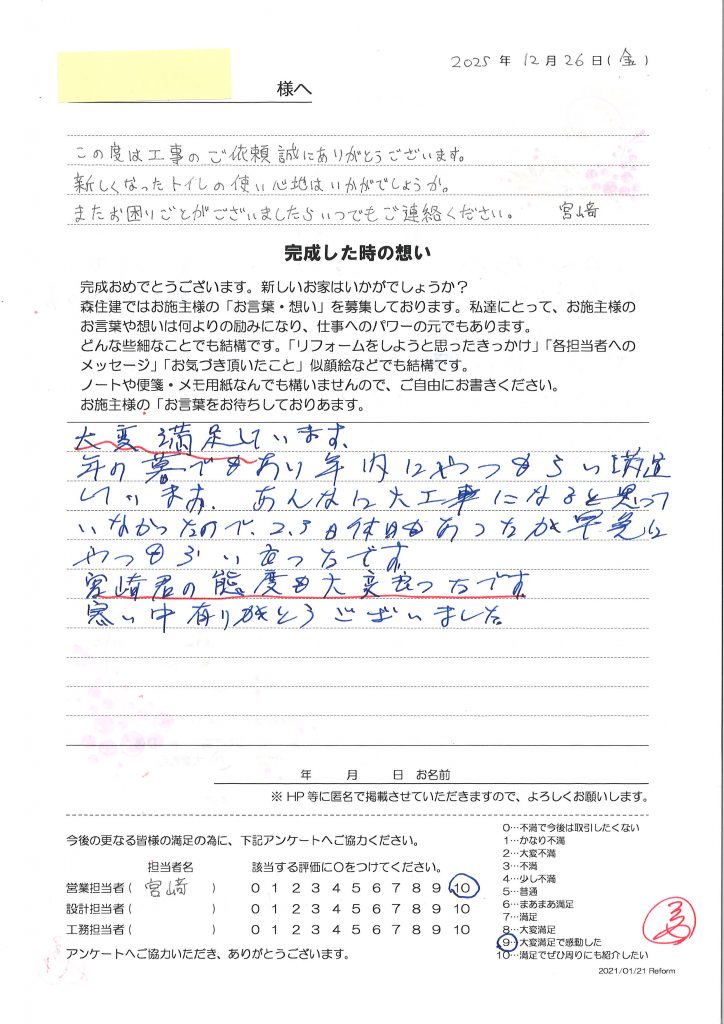 2025年 12月 26日(金)
様へ
この度は工事のご依頼誠にありがとうございます。
新しくなったトイレの使い心地はいかがでしょうか。
またお困りごとがございましたらいつでもご連絡ください。 宮﨑
完成した時の想い
完成おめでとうございます。新しいお家はいかがでしょうか?
森住建ではお施主様の「お言葉・想い」を募集しております。私達にとって、お施主様の
お言葉や想いは何よりの励みになり、仕事へのパワーの元でもあります。
どんな些細なことでも結構です。「リフォームをしようと思ったきっかけ」「各担当者への
メッセージ」「お気づき頂いたこと」似顔絵などでも結構です。
ノートや便箋・メモ用紙なんでも構いませんので、ご自由にお書きください。
お施主様の「お言葉をお待ちしておりあます。
大変満足しています。
年の暮でもあり年内にやってもらい満足
しています。あんなに大工事になると思って
いなかったので、2.3日休日もあったが早急に
やってもらい良かったです。
宮崎君の態度も大変良かったです。
寒い中有りがとうございました。
年 月 日 お名前
※HP等に匿名で掲載させていただきますので、よろしくお願いします。
今後の更なる皆様の満足の為に、下記アンケートへご協力ください。
担当者名 該当する評価に○をつけてください。
営業担当者( 宮﨑 ) 0 1 2 3 4 5 6 7 8 9 10
設計担当者( ) 0 1 2 3 4 5 6 7 8 9 10
工務担当者( ) 0 1 2 3 4 5 6 7 8 9 10
アンケートへご協力いただき、ありがとうございます。
0…不満で今後は取引したくない
1…かなり不満
2…大変不満
3…不満
4…少し不満
5…普通
6…まあまあ満足
7…満足
8…大変満足
9…大変満足で感動した
10…満足でぜひ周りにも紹介したい
2021/01/21 Reform